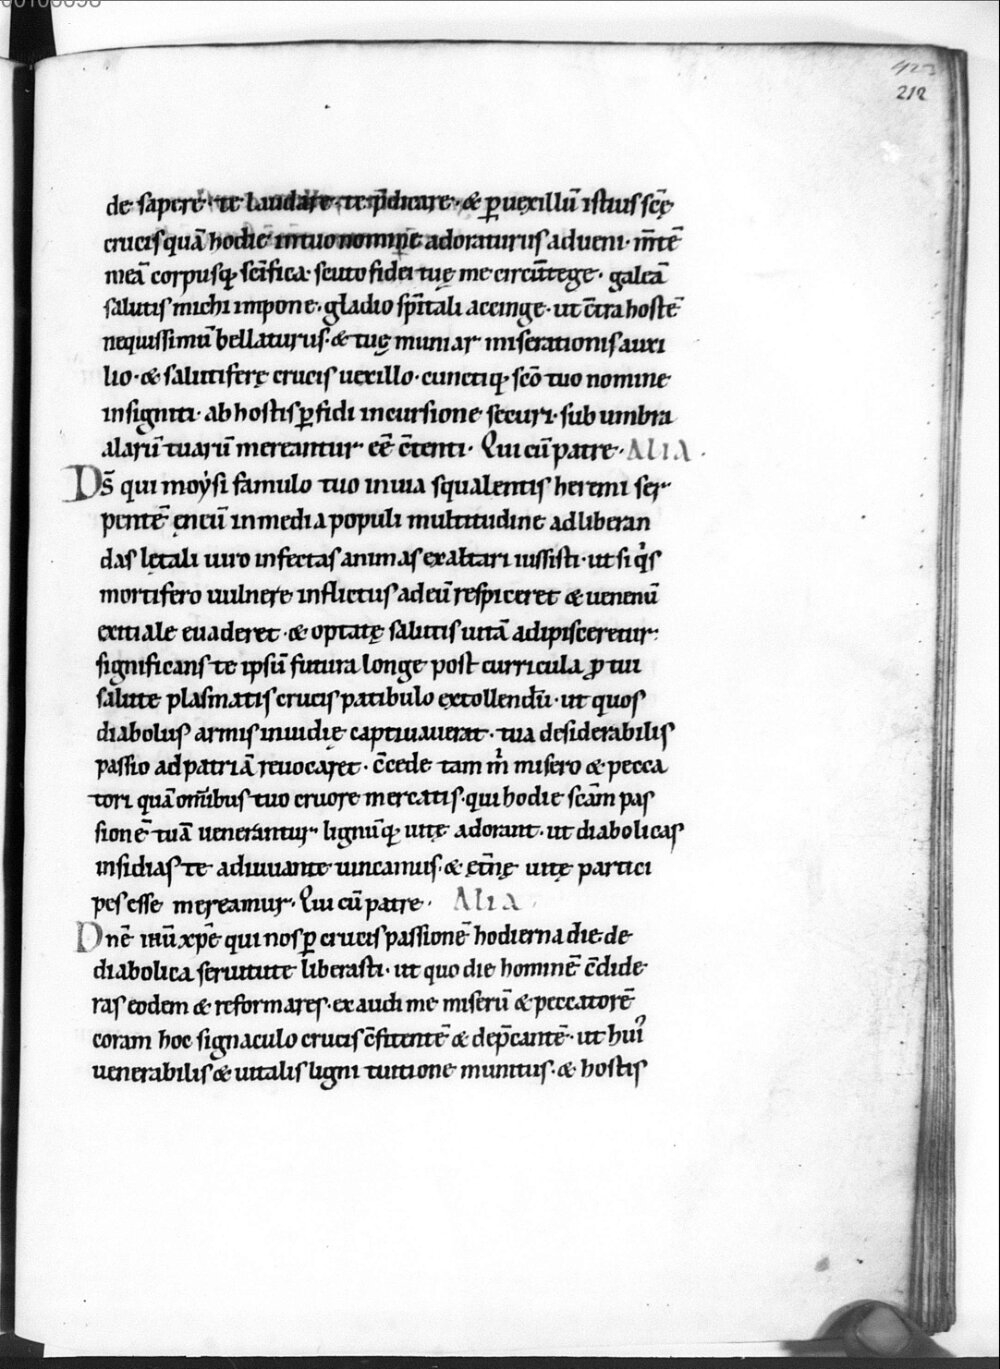 423
212
de sapere· te laudare· te p̄dicare· & ꝑ uexillū istius scę̄
crucis quā hodie in tuo nomine adoraturus adueni· m̄tē
meā corpusq; sc̄ifica· scuto fidei tuę me circūtege· galeā
salutis michi impone· gladio sp̄itali accinge· ut c̄tra hostē
nequissimū bellaturus· & tuę muniar miserationis auxi
lio· & salutiferę crucis uexillo· cunctiq; scō tuo nomine
insigniti· ab hostis ꝑfidi incursione securi· sub umbra
alarū tuarū mereantur eē c̄tenti· Qui cū patre· ALIA·
Ds̄ qui moẏsi famulo tuo in uia squalentis heremi ser
pentē ęneū in media populi multitudine ad liberan
das lętali uiro infectas animas exaltari iussisti· ut si q̇s
mortifero uulnere inflictus ad eū respiceret & uenenū
exitiale euaderet· & optatę salutis uitā adipisceretur·
significans te ipsū futura longe post curricula ꝓ tui
salute plasmatis crucis patibulo extollendū· ut quos
diabolus armis inuidię captiuauerat· tua desiderabilis
passio ad patriā reuocaret· c̄cede tam m̉ misero & pecca
tori quā om̄ibus tuo cruore mercatis· qui hodie scām pas
sionē tuā uenerantur lignūq; uitę adorant· ut diabolicas
insidias te adiuuante uincamus· & ęt̄nę uitę partici
pes esse mereamur· Qui cū patre· ALIA·
Dnē ihū xp̄e qui nos ꝑ crucis passionē hodierna die· de
diabolica seruitute liberasti· ut quo die hominē c̄dide
ras eodem & reformares· exaudi me miserū & peccatorē
coram hoc signaculo crucis c̄fitentē & dep̄cantē· ut hui᾿
uenerabilis & uitalis ligni tuitione munitus· & hostis